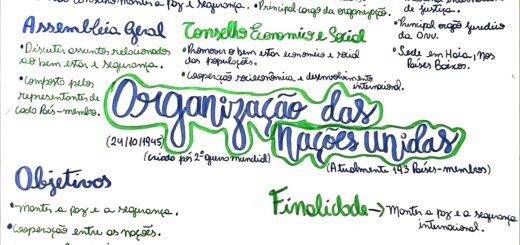 manter a paz e a segurança.
• Principal cargo da organização.
de justiça.
Assembleia Geral
• Discutir assuntos relacionados
ao bem estar e segurança.
• Composto pelos
representantes de
cada País-membro.
Conselho Economico e Social
• Promover o bem estar economico e social
das populações.
• Cooperação socioeconomica e desenvolvimento
internacional.
• Principal orgão juridico
da ONU.
• Sede em Haia, nos
Países Baixos.
Organização das
Nações Unidas
(24/10/1945)
(criado pós 2ª guerra mundial)
(Atualmente 193 Países-membros)
Objetivos
• Manter a paz e a segurança.
• Cooperação entre as nações.
Finalidade → Manter a paz e a segurança
internacional.